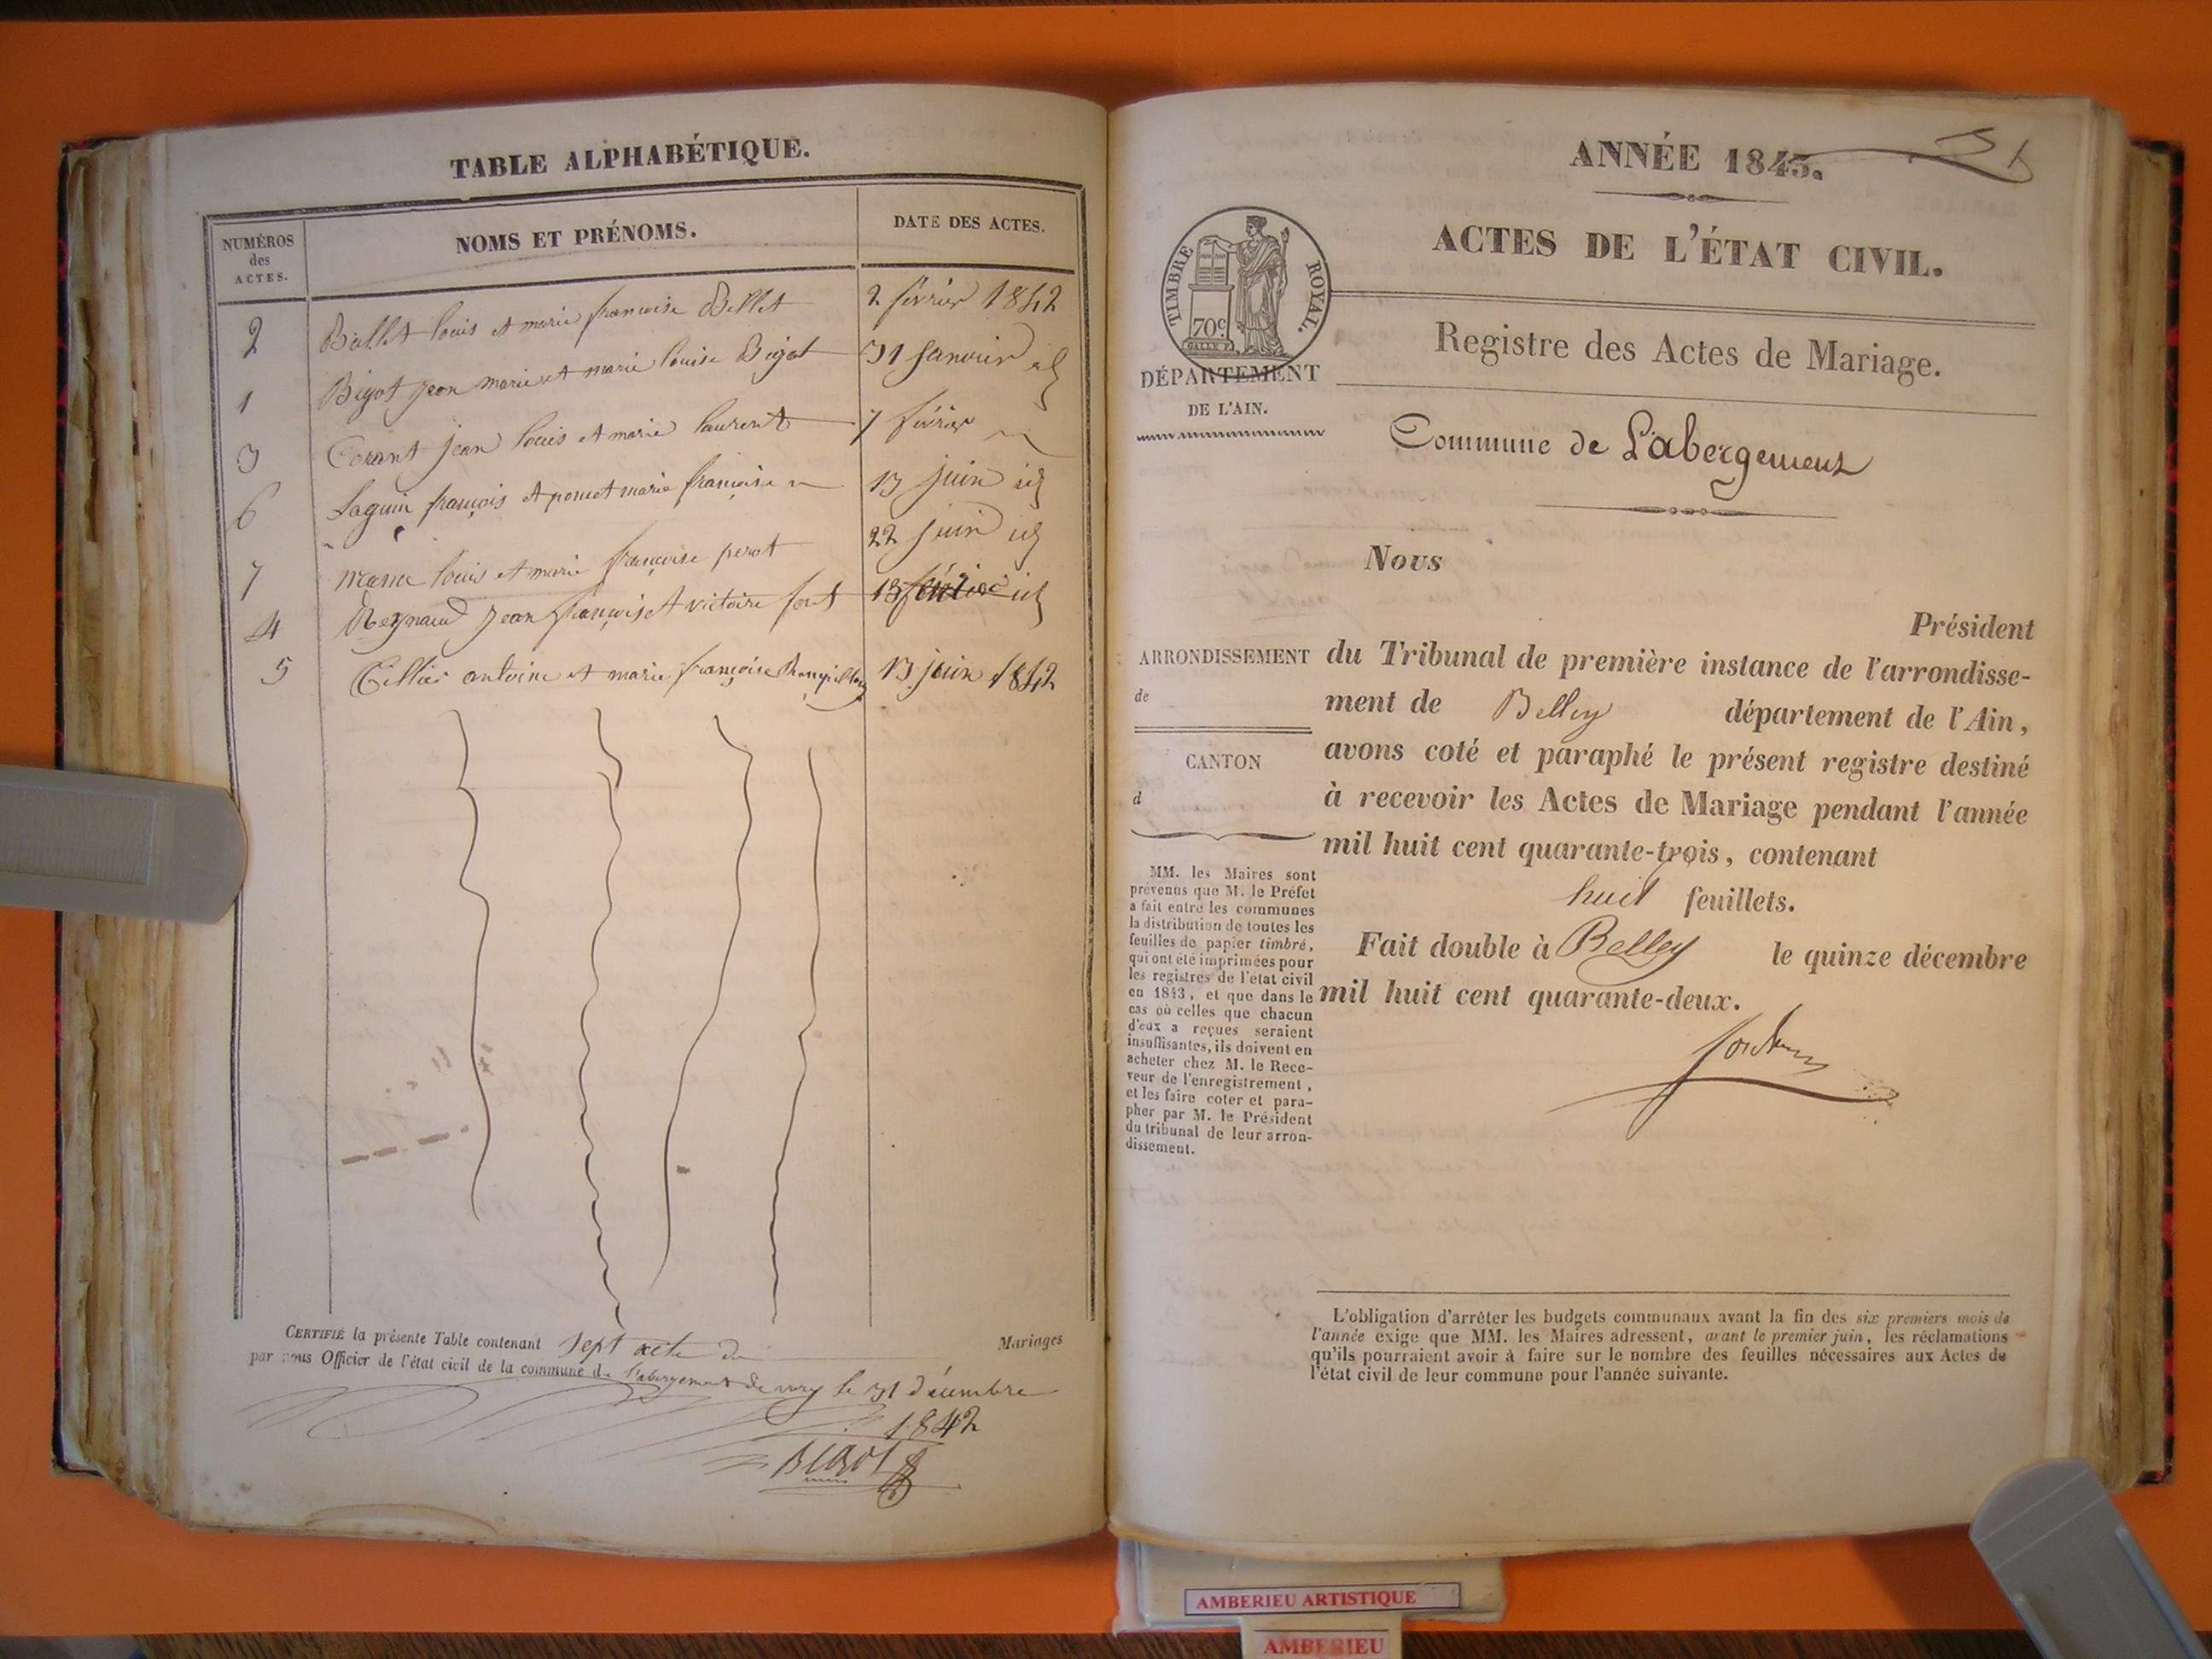 TABLE ALPHABÉTIQUE.
NUMÉROS
des
ACTES.
NOMS ET PRÉNOMS.
DATE DES ACTES.
2 Billet louis et marie francoise Billet 2 février 1842
1 Bigot jean marie et marie louise Bigot 31 janvier id
3 jean louis et marie laurent 7 février
6 françois et marie françoise 13 juin id
7 louis et marie francoise 22 juin id
4 Reynaud jean françois et victoire 13 id
5 antoine et marie françoise 13 juin 1842
CERTIFIÉ la présente Table contenant sept acte de Mariages
par nous Officier de l'état civil de la commune de l'abergement de le 31 décembre
1842
ANNÉE 1843.
ACTES DE L'ÉTAT CIVIL.
TIMBRE ROYAL.
70c.
Registre des Actes de Mariage.
DÉPARTEMENT
DE L'AIN.
Commune de L'abergement
Nous
Président
du Tribunal de première instance de l'arrondisse-
ment de Belley département de l'Ain,
avons coté et paraphé le présent registre destiné
à recevoir les Actes de Mariage pendant l'année
mil huit cent quarante-trois, contenant
huit feuillets.
Fait double à Belley le quinze décembre
mil huit cent quarante-deux.
ARRONDISSEMENT
de
CANTON
d
MM. les Maires sont
prévenus que M. le Préfet
a fait entre les communes
la distribution de toutes les
feuilles de papier timbré,
qui ont été imprimées pour
les registres de l'état civil
en 1843, et que dans le
cas où celles que chacun
d'eux a reçues seraient
insuffisantes, ils doivent en
acheter chez M. le Rece-
veur de l'enregistrement,
et les faire coter et para-
pher par M. le Président
du tribunal de leur arron-
dissement.
L'obligation d'arrêter les budgets communaux avant la fin des six premiers mois de
l'année exige que MM. les Maires adressent, avant le premier juin, les réclamations
qu'ils pourraient avoir à faire sur le nombre des feuilles nécessaires aux Actes de
l'état civil de leur commune pour l'année suivante.
AMBERIEU ARTISTIQUE
AMBERIEU